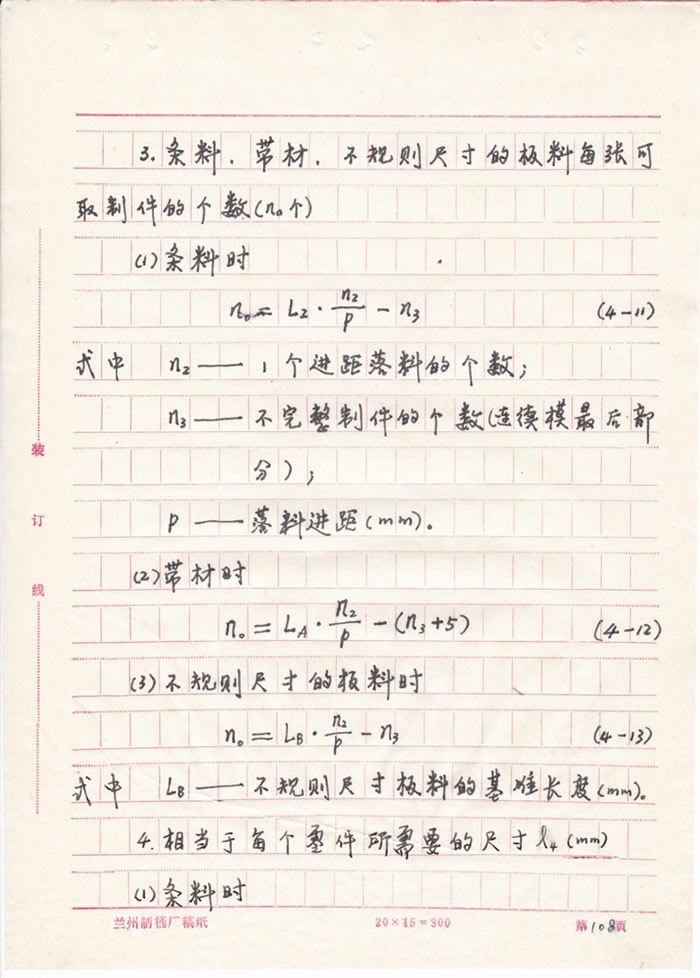 3. 条料、带材、不规则尺寸的板料每张可
取制件的个数(n₀个)
(1) 条料时
n₀ = L₂ · n₂/p − n₃ (4-11)
式中 n₂ —— 1个进距落料的个数;
n₃ —— 不完整制件的个数(连续模最后部
分);
p —— 落料进距(mm)。
(2) 带材时
n₀ = L_A · n₂/p − (n₃+5) (4-12)
(3) 不规则尺寸的板料时
n₀ = L_B · n₂/p − n₃ (4-13)
式中 L_B —— 不规则尺寸板料的基准长度(mm)。
4. 相当于每个零件所需要的尺寸 l₄ (mm)
(1) 条料时
装
订
线
20×15=300
第108页